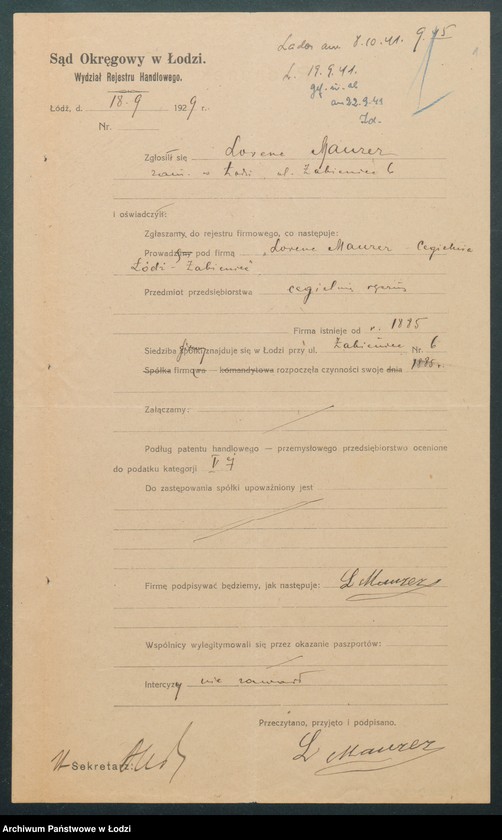 Sąd Okręgowy w Łodzi.
Wydział Rejestru Handlowego.
Łódź, d. 18.9 1929 r.
Nr.
8.10.41. 9.45
L. 19.9.41.
Zgłosił się Lorenc Maurer
zam. w Łodzi, ul. Żabieniec 6
i oświadczył:
Zgłaszamy, do rejestru firmowego, co następuje:
pod firmą „Lorenc Maurer Cegielnia
Łódź-Żabieniec"
Przedmiot przedsiębiorstwa
Firma istnieje od r. 1885
Siedziba firmy znajduje się w Łodzi przy ul. Żabieniec Nr. 6
Spółka firmowa — komandytowa rozpoczęła czynności swoje dnia 1885 r.
Załączamy:
Podług patentu handlowego — przemysłowego przedsiębiorstwo ocenione
do podatku kategorji
Do zastępowania spółki upoważniony jest
Firmę podpisywać będziemy, jak następuje: L Maurer
Wspólnicy wylegitymowali się przez okazanie paszportów:
Intercyzy nie zawarł
Przeczytano, przyjęto i podpisano.
L Maurer
Sekretarz:
Archiwum Państwowe w Łodzi